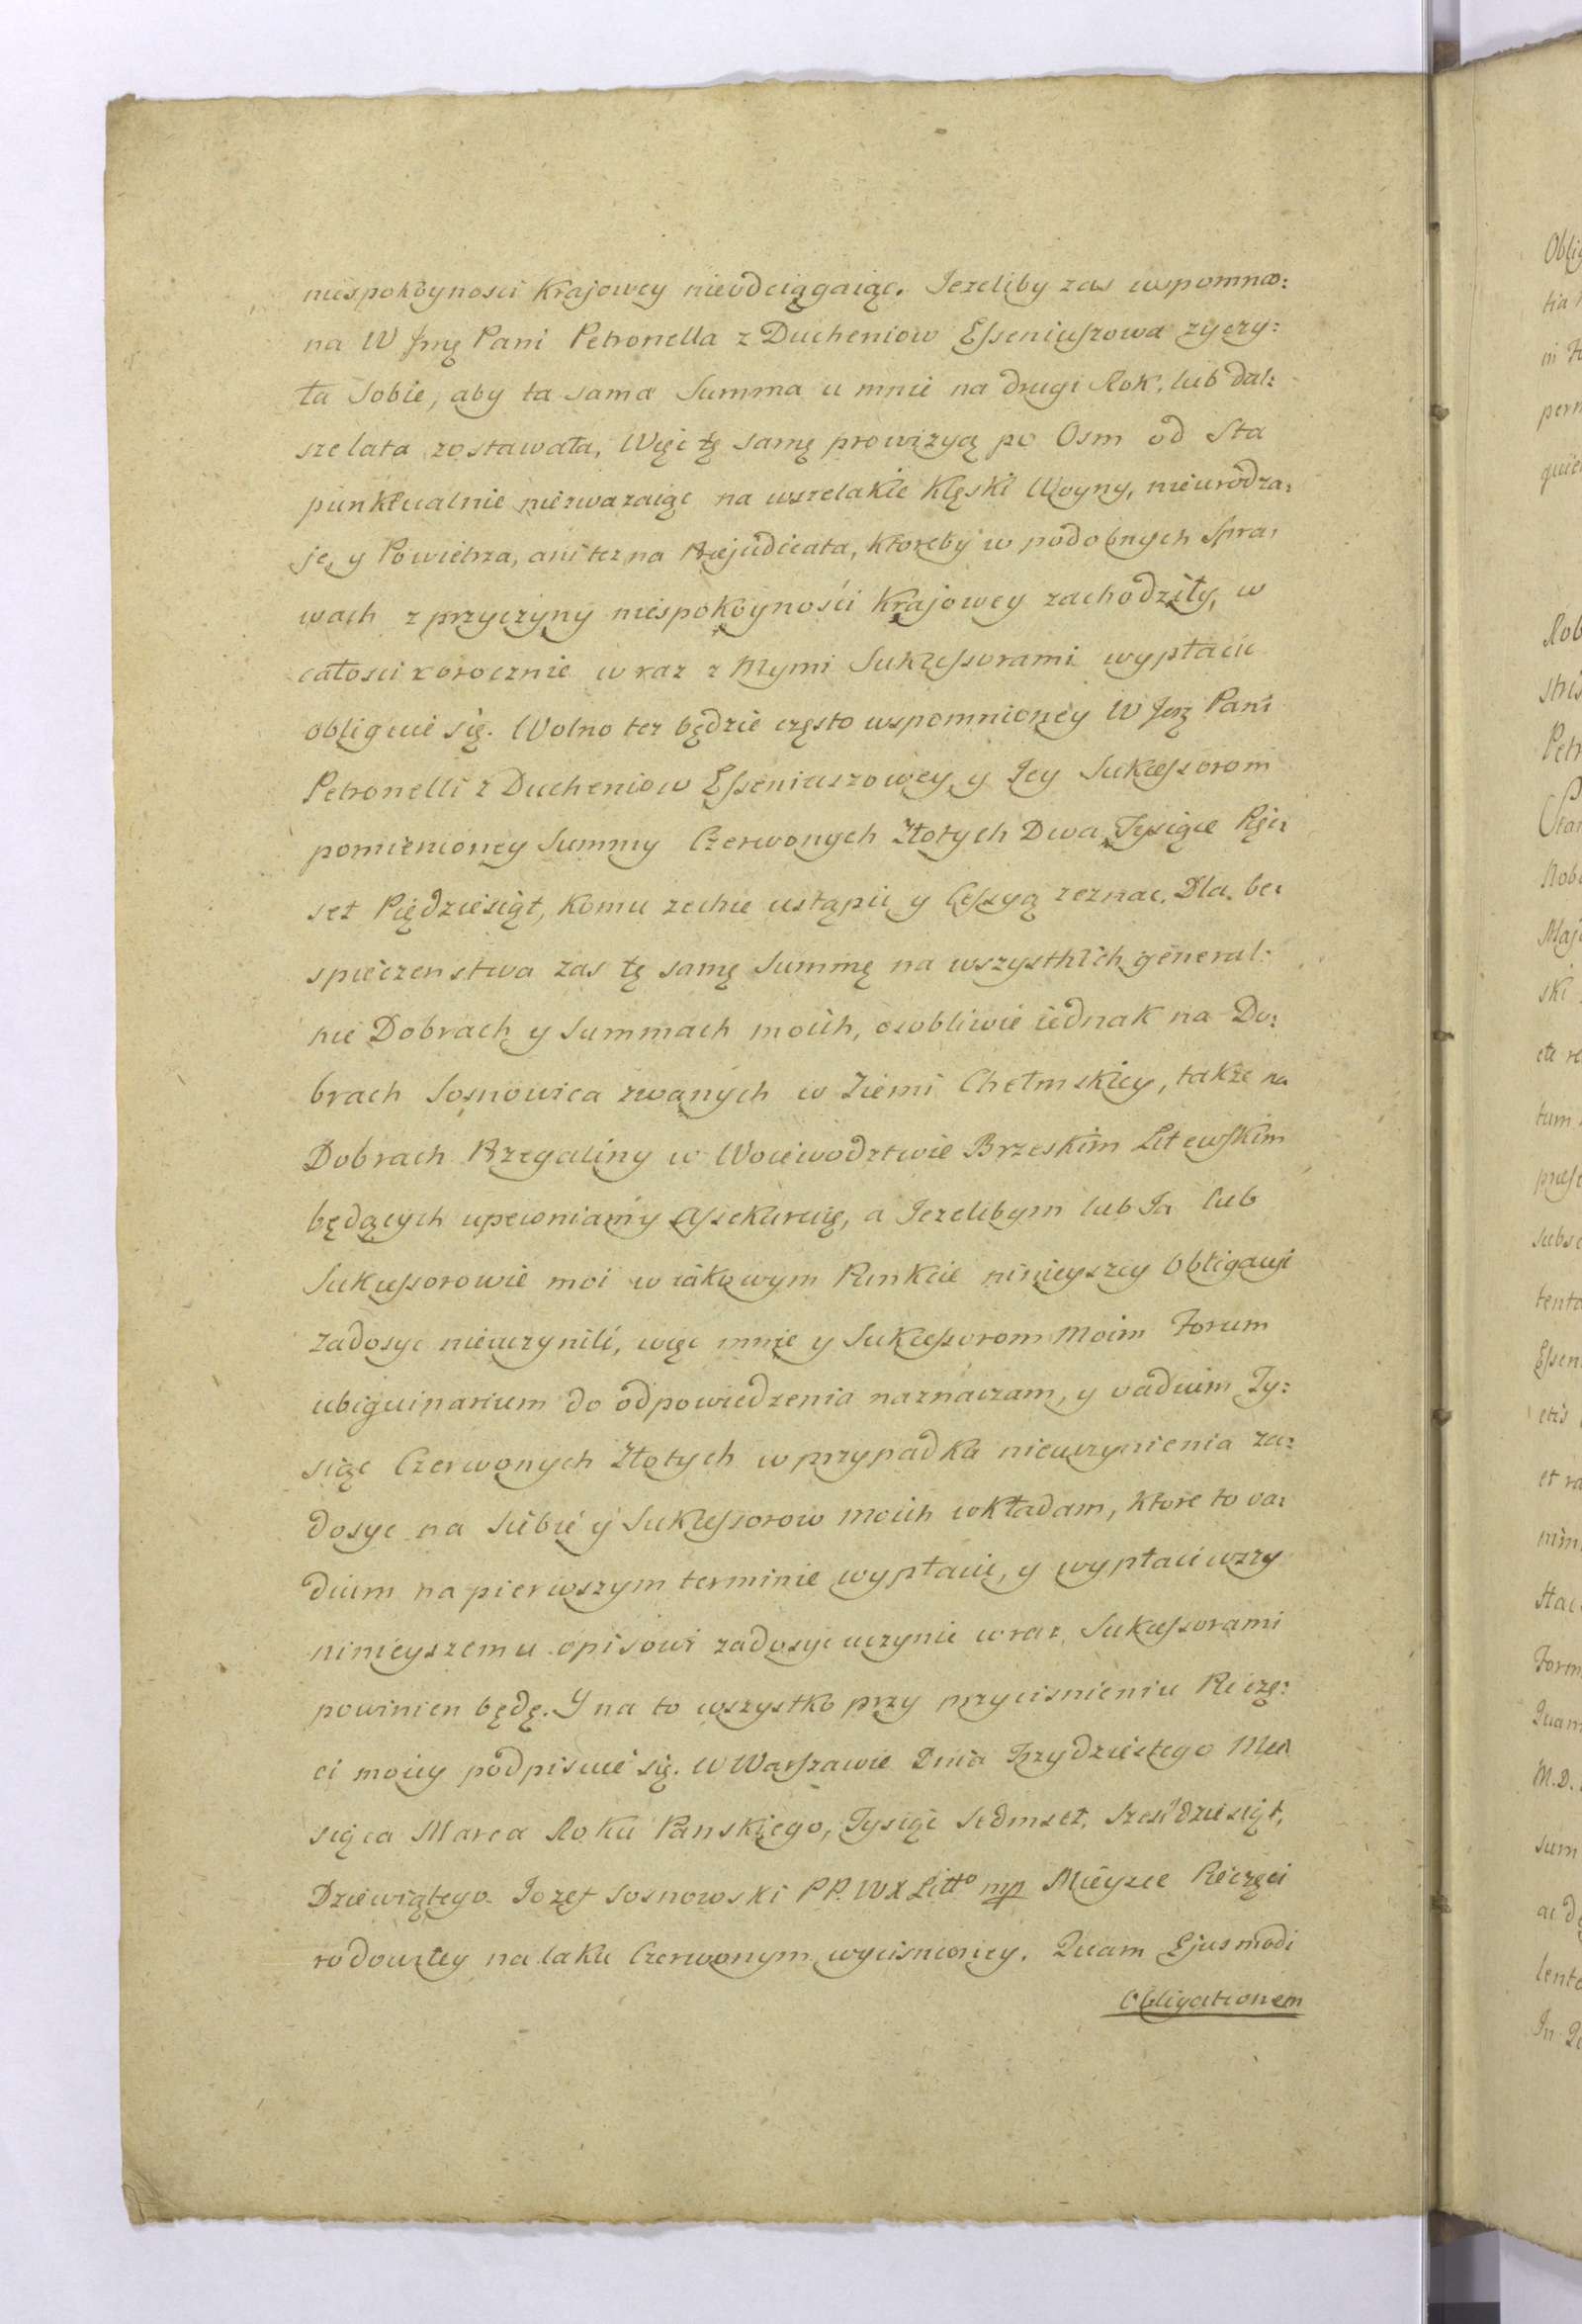 niespokoynosci Krajowey nieodciągaiąc. Jezeliby zas wspomnio:
na W Jmę Pani Petronella z Ducheniow Esseniuszowa zyczy:
ła Sobie, aby ta sama Summa u mnie na drugi Rok, lub dal:
sze lata zostawała, Więc tę samę prowizyą po Osm od Sta
punktualnie niezwazaiąc na wszelakie Klęski Woyny, nieurodza:
je, y Powietrza, ani tez na Prejudicata, ktoreby w podobnych Spra:
wach z przyczyny niespokoyności Krajowey zachodziły, w
całosci corocznie wraz z Mymi Sukcessorami wypłacic
obliguie się. Wolno tez będzie często wspomnioney W Jmę Pani
Petronelli z Ducheniow Esseniuszowey, y Jey Sukcessorom
pomienioney Summy Czerwonych Złotych Dwa Tysiące Pięc:
set Pięđziesiąt, Komu zechce ustąpic y Cessyą zeznac. Dla be:
spieczenstwa zas tę samę Summę na wszystkich general:
nie Dobrach y Summach moich, osobliwie iednak na Do:
brach Sosnowica zwanych w Ziemi Chełmskiey, także na
Dobrach Przegaliny w Woiewodztwie Brzeskim Litewskim
będących upewniam y assekuruię, a Jezelibym lub Ja lub
Sukcessorowie moi w iakowym Punkcie ninieyszey Obligacyi
zadosyc nieuczynili, więc mnie y Sukcessorom Moim Forum
ubiquinarium do odpowiedzenia naznaczam, y vadium Ty:
siąc Czerwonych Złotych w przypadku nieuczynienia za:
dosyc na Siebie y Sukcessorow moich wkładam, ktore to va:
dium na pierwszym terminie wypłacic, y wypłaciwszy
ninieyszemu opisowi zadosyc uczynic wraz Sukcessorami
powinien będę. Y na to wszystko przy przycisnieniu Pieczę:
ci moiey podpisuie się. w Warszawie Dnia Trzydziestego Mie:
siąca Marca Roku Panskiego, Tysiąc Siedmset, Sześćdziesiąt,
Dziewiątego. Jozef Sosnowski PP. WX Litto mp Mieysce Pieczęci
rodowitey na laku Czerwonym wycisnioney. Quam Ejusmodi
Obligationem